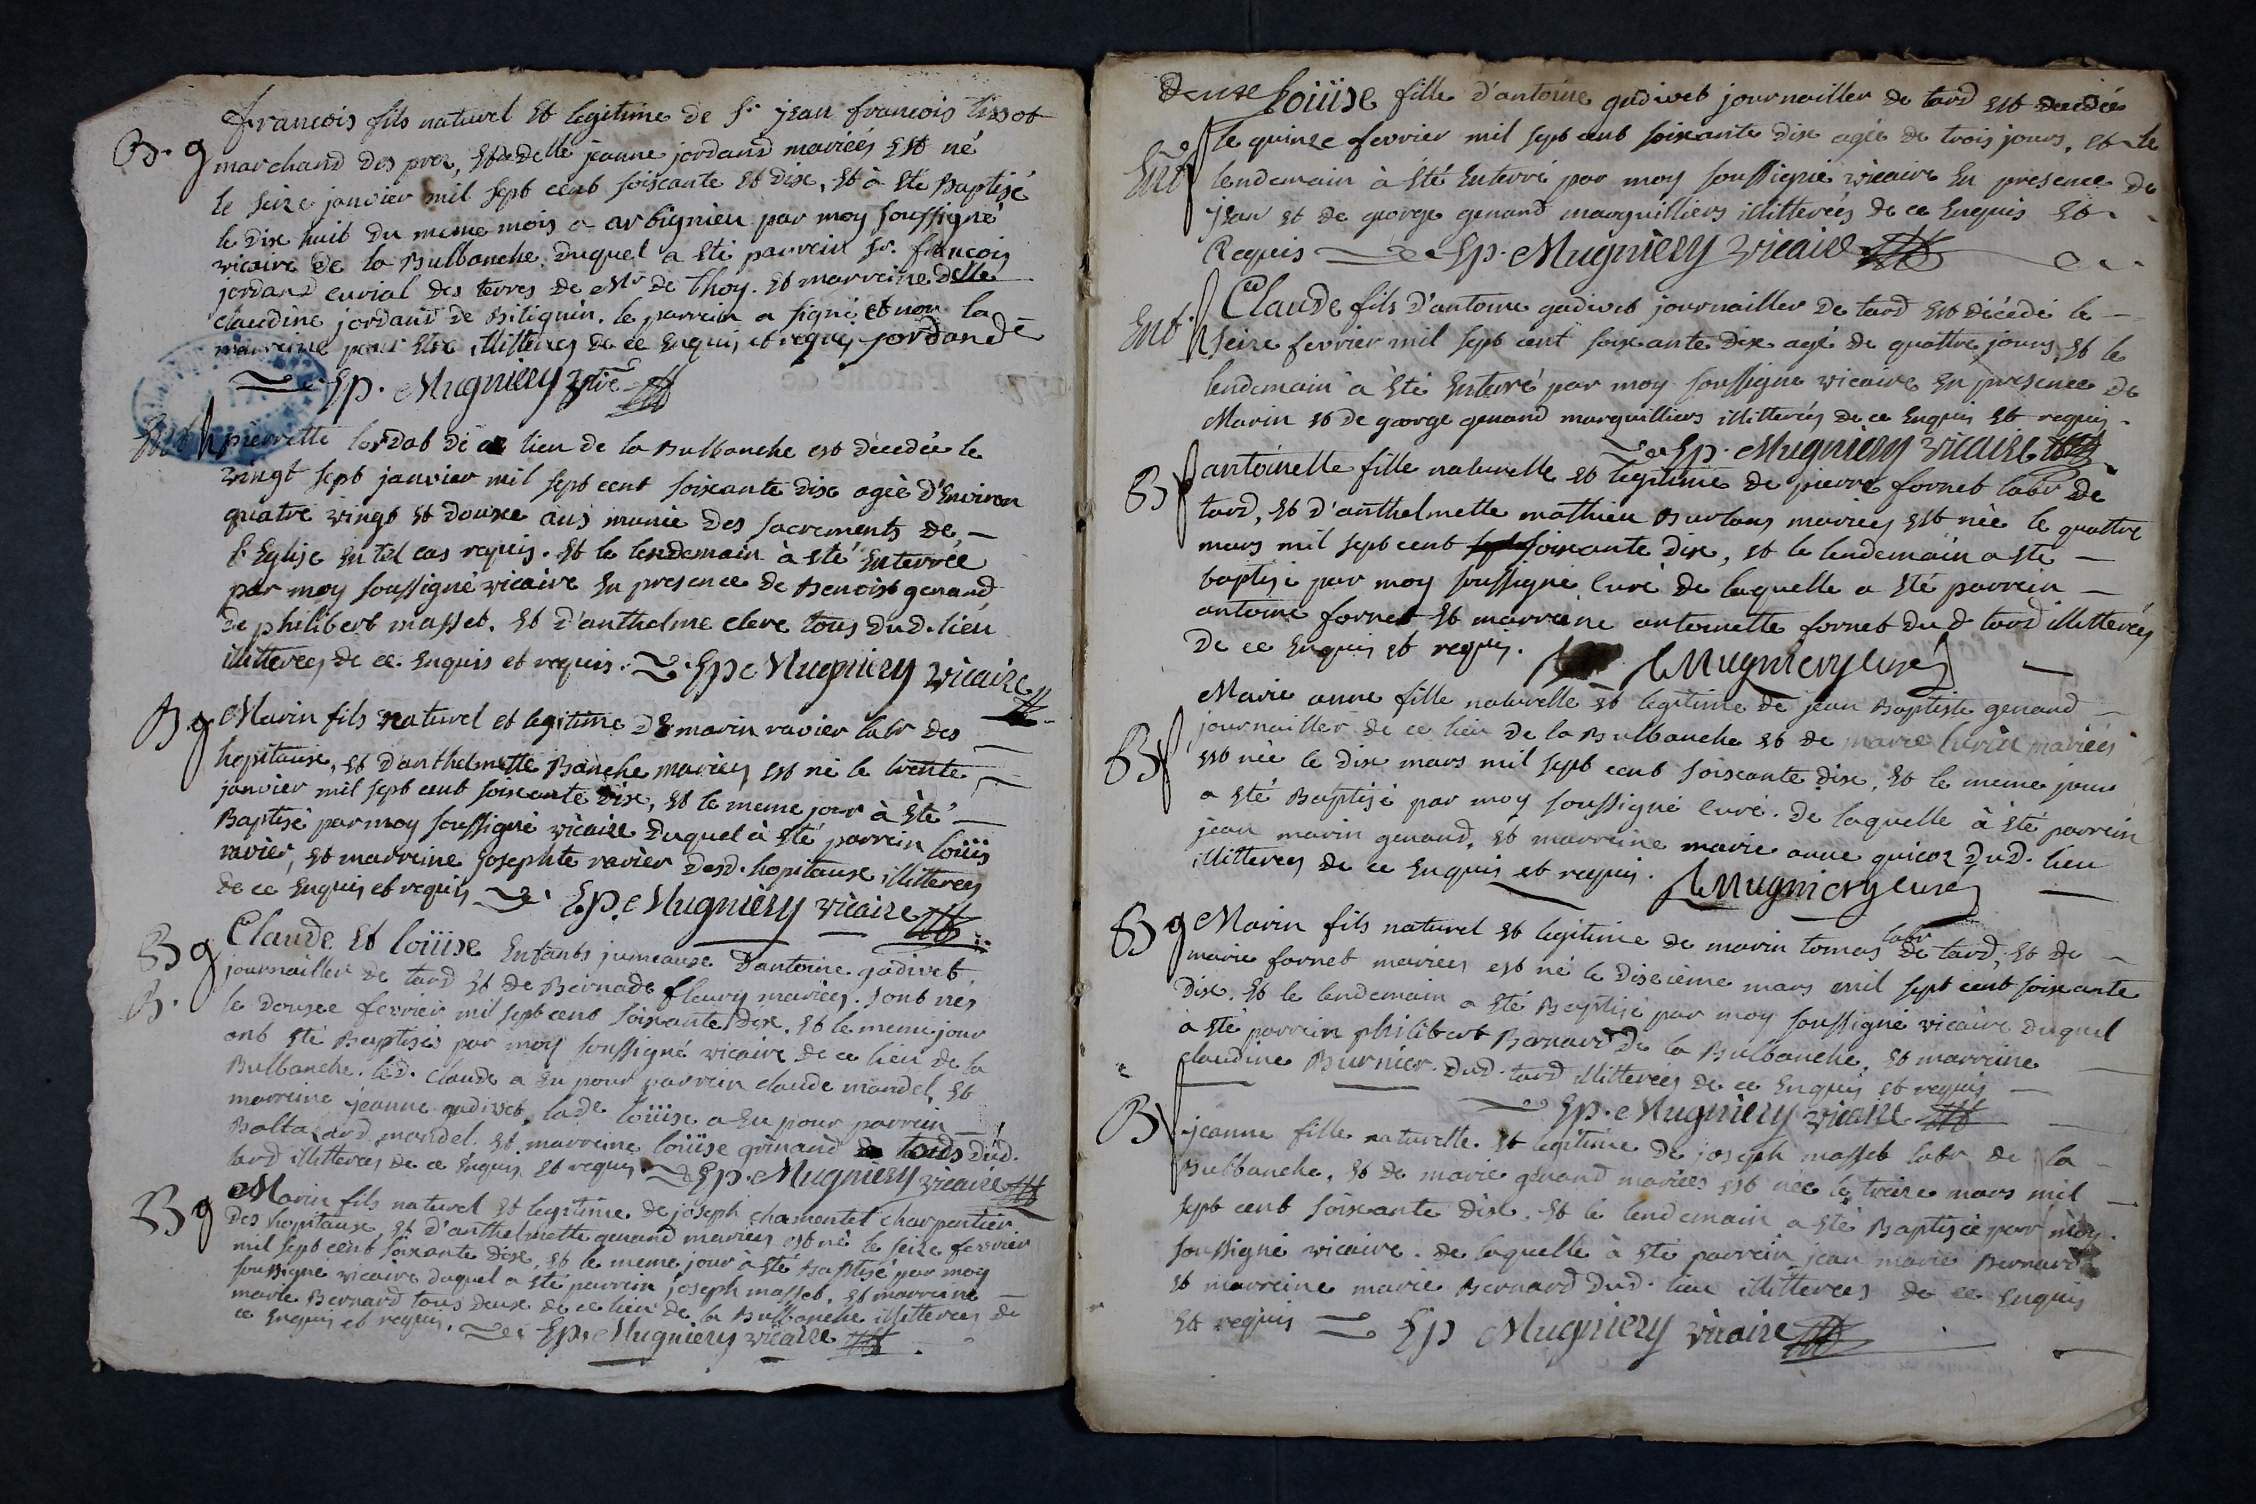 B. g
francois fils naturel et legitime de Sr jean francois tissot
marchand des prez, et de delle jeanne jordand mariéés est né
le seize janvier mil sept cent soiscante et dix, et à été Baptisé
le dix huit du meme mois a arbignieu par moy soussigné
vicaire de la Bulbanche. duquel a été parrein Sr. françois
jordand curial des terres de Mr de thoy. et marreine delle
claudine jordand de Biliguin. le parrein a signé et non la
marreine pour etre illitterez de ce enquis et requis jordand
Ep. Mugniery
Ent h pierrette lordat de ce lieu de la Bulbanche est décedée le
vingt sept janvier mil sept cent soixante dix agée d'Environ
quatre vingt et douxe ans munie des sacrements de
l'Eglise en tel cas requis. et le lendemain a eté enterrée
par moy soussigné vicaire en presence de Benoist genand
de philibert masset. et d'anthelme clerc tous dud. lieu
illitterez de ce enquis et requis. Ep. Mugniery vicaire
B. g Marin fils naturel et legitime de marin ravier labr des
hopitaux, et d'anthelmette Banche mariez est né le trente
janvier mil sept cent soixante dix, et le meme jour à été
Baptisé par moy soussigné vicaire duquel à eté parrein loüis
ravier, et marreine josephte ravier desd. hopitaux illitterez
de ce enquis et requis Ep. Mugniery vicaire
B g Claude et loüise Enfants jumeaux d'antoine gadivet
B. journailler de tard et de Bernade fleury mariez. sont nés
le douxe fevrier mil sept cent soixante dix. et le meme jour
ont été Baptisés par moy soussigné vicaire de ce lieu de la
Bulbanche. led. claude a eu pour parrein claude mandel, et
marreine jeanne gadivet, lade loüise a eu pour parrein
Baltazard mandel. et marreine loüise genand tous dud.
tard illitterez de ce enquis et requis. Ep. Mugniery vicaire
B g Marin fils naturel et legitime de joseph chamontel charpentier
des hopitaux, et d'anthelmette genand mariez est né le seize fevrier
mil sept cent soixante dix, et le meme jour à été baptisé par moy
soussigné vicaire duquel a eté parrein joseph masset, et marreine
marie Bernard tous deux de ce lieu de la Bulbanche illitterez de
ce enquis et requis. Ep. Mugniery vicaire
Loüise fille d'antoine gadivet journailler de tard est decedée
Ent f le quinze fevrier mil sept cent soixante dix agée de trois jours, et le
lendemain à été Enterré par moy soussigné vicaire en presence de
jean et de george genand marguilliers illitteréz de ce enquis et
Requis Ep. Mugniery vicaire
Ent. h Claude fils d'antoine gadivet journailler de tard est décédé le
seize fevrier mil sept cent soixante dix agé de quattre jours, et le
lendemain a été Enterré par moy soussigne vicaire en presence de
Marin et de george genand marguilliers illitteréz de ce enquis et requis.
Ep. Mugniery vicaire
B f antoinette fille naturelle et legitime de pierre fornet labr de
tard, et d'anthelmette mathieu Burlans mariez est née le quattre
mars mil sept cent soixante dix, et le lendemain a été
baptisé par moy soussigné curé de laquelle a été parrein
antoine fornet et marreine antoinette fornet dud tard illitteréz
de ce enquis et requis. Mugniery curé
Marie anne fille naturelle et legitime de jean Baptiste genand
B f journailler de ce lieu de la Bulbanche et de marie mariéés
est née le dix mars mil sept cent soiscante dix, et le meme jour
a été Baptisé par moy soussigné curé. de laquelle à été parrein
jean marin genand, et marreine marie anne guicoz dud. lieu
illitterez de ce enquis et requis. Mugniery curé
B g Marin fils naturel et legitime de marin tomas labr de tard, et de
marie fornet mariez est né le dixcieme mars mil sept cent soixante
dix. et le lendemain a été Baptisé par moy soussigné vicaire duquel
à été parrein philibert Bernard de la Bulbanche, et marreine
claudine Burnier. dud. tard illitteréz de ce enquis et requis
Ep. Mugniery vicaire
B f jeanne fille naturelle. et legitime de joseph masset labr de la
Bulbanche, et de marie genand mariées est née le treize mars mil
sept cent soixante dix. et le lendemain a été Baptisée par moy.
soussigné vicaire. de laquelle à été parrein jean marie Bernard
et marreine marie Bernard dud. lieu illitterez de ce enquis
et requis Ep Mugniery vicaire